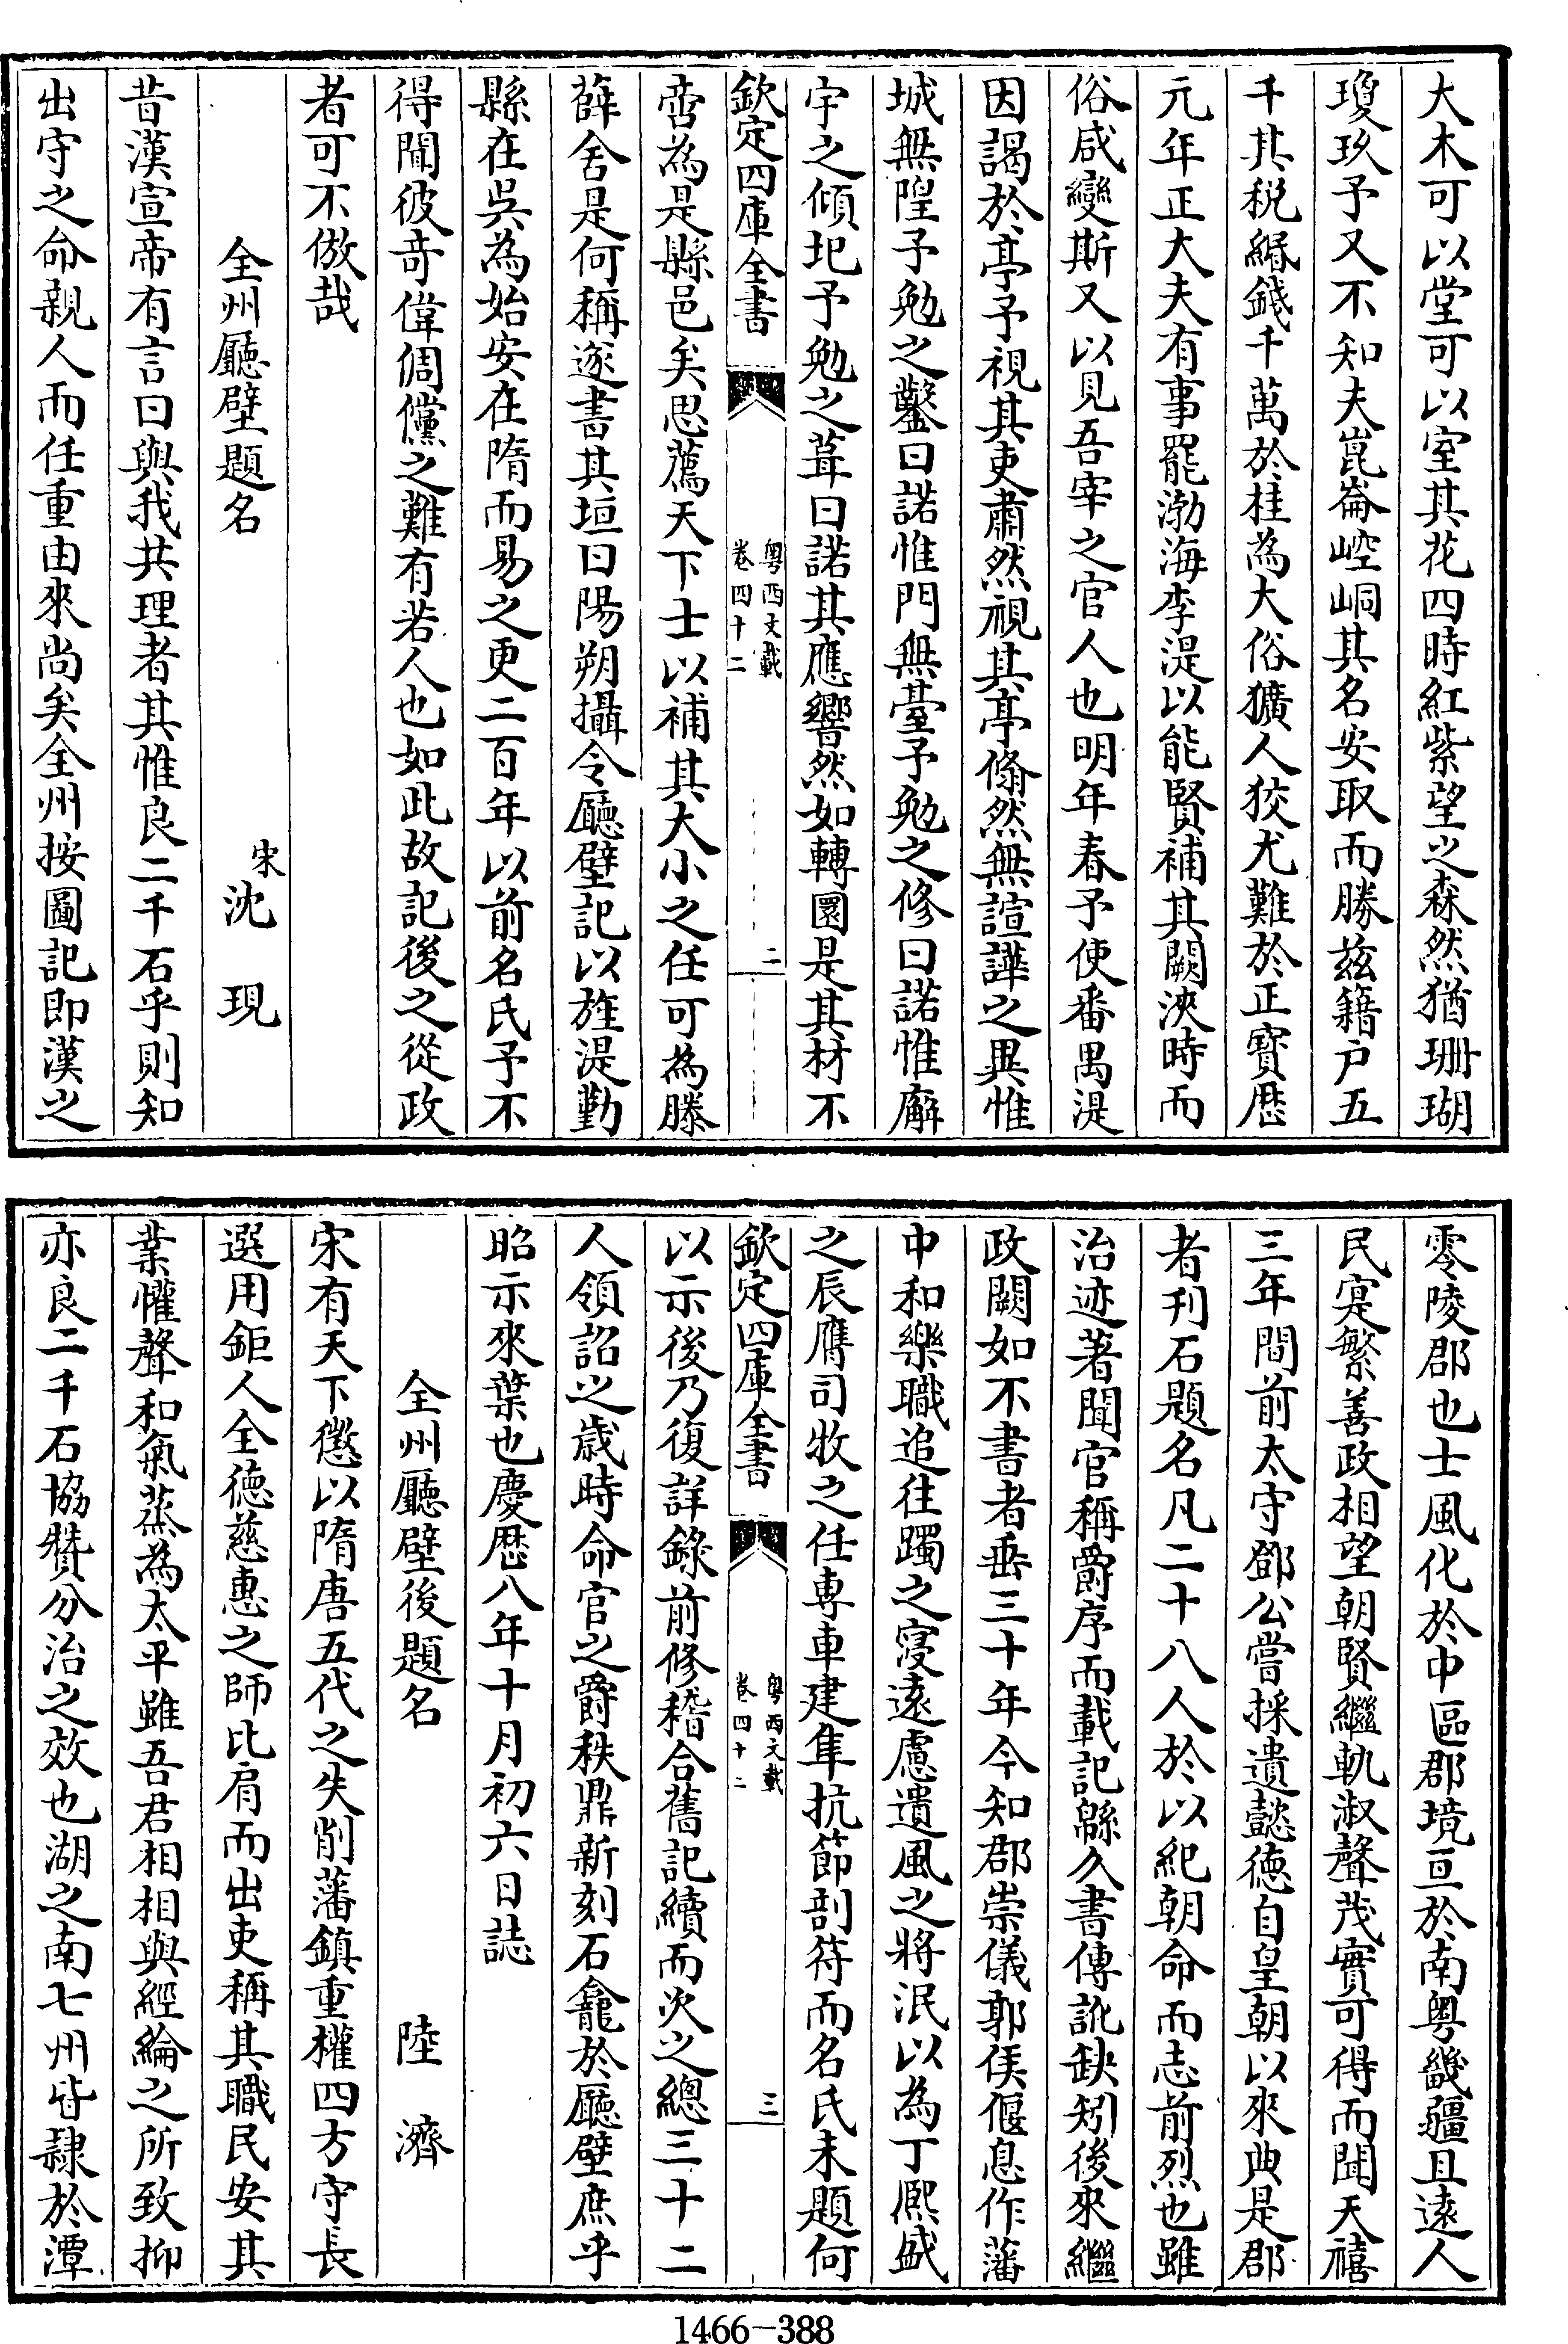 大木可以堂可以室其花四時紅紫望之森然猶珊瑚
瓊玖予又不知夫崑崙崆峒其名安取而勝兹籍户五
千其税緡錢千萬於桂為大俗獷人狡尤難於正寳厯
元年正大夫有事罷渤海李湜以能賢補其闕浹時而
俗咸變斯又以見吾宰之官人也明年春予使番禺湜
因謁於亭予視其吏肅然視其亭翛然無諠譁之異惟
城無隍予勉之鑿曰諾惟門無臺予勉之修曰諾惟廨
宇之傾圯予勉之葺曰諾其應響然如轉圜是其材不
欽定四庫全書
粤西文載
卷四十二
二
啻為是縣邑矣思薦天下士以補其大小之任可為滕
薛舍是何稱遂書其垣曰陽朔攝令廳壁記以旌湜勤
縣在吳為始安在隋而易之更二百年以前名氏予不
得聞彼竒偉倜儻之難有若人也如此故記後之從政
者可不倣哉
全州廳壁題名
宋沈現
昔漢宣帝有言曰與我共理者其惟良二千石乎則知
出守之命親人而任重由來尚矣全州按圖記即漢之
零陵郡也士風化於中區郡境亘於南粤畿疆且逺人
民寔繁善政相望朝賢繼軌淑聲茂實可得而聞天禧
三年間前太守鄧公嘗採遺懿徳自皇朝以來典是郡
者刋石題名凡二十八人於以紀朝命而志前烈也雖
治迹著聞官稱爵序而載記緜久書傳訛缺矧後來繼
政闕如不書者垂三十年今知郡崇儀郭侯偃息作藩
中和樂職追往躅之寖逺慮遺風之將泯以為丁熈盛
之辰膺司牧之任専車建隼抗節剖符而名氏未題何
欽定四庫全書
粤西文載
卷四十二
三
以示後乃復詳錄前修稽合舊記續而次之總三十二
人領詔之歳時命官之爵秩鼎新刻石龕於廳壁庶乎
昭示來葉也慶厯八年十月初六日誌
全州廳壁後題名
陸濟
宋有天下懲以隋唐五代之失削藩鎮重權四方守長
選用鉅人全德慈惠之師比肩而出吏稱其職民安其
業懽聲和氣蒸為太平雖吾君相相與經綸之所致抑
亦良二千石協贊分治之效也湖之南七州皆隸於潭
1466-388